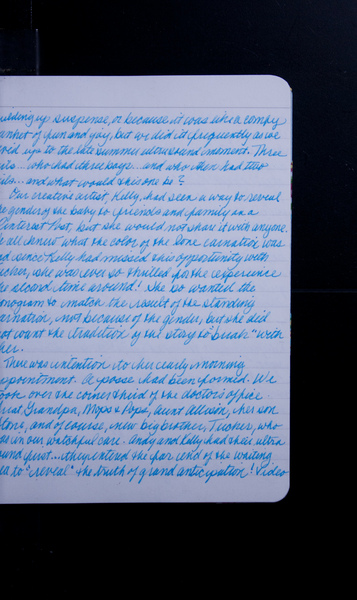 uilding up suspense, or because it was like a comfy
anket of fun and joy, but we did it frequently as we
ved up to the late summer ultrasound moment. Three
... who had three boys... and who then had two
ls... and what would this one be?
Our creative artist, Kelly, had seen a way to reveal
he gender of the baby to friends and family on a
interest Post, but she would not share it with anyone.
all knew what the color of the lone carnation was
nd since Kelly had missed this opportunity with
ucker, she was ever so thrilled for the experience
he second time around! She so wanted the
onogram to match the result of the standing
arnation, not because of the gender, but she did
ot want the tradition of the story to "break" with
her.
There was intention to her early morning
ppointment. A posse had been formed. We
ook over the corner third of the doctor's office
Grandpa, Mops & Pops, Aunt Allison, her son
and of course, new big brother, Tucker, who
as in our watchful care. Andy and Kelly had their ultra
ound first... they entered the far end of the waiting
ea to "reveal" the truth of grand anticipation! Video